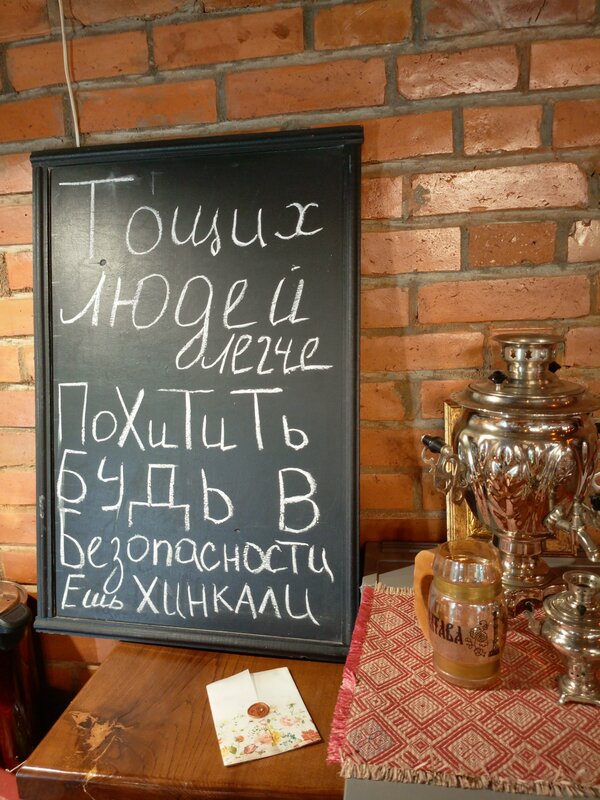 Тощих
людей
легче
ПоХиТиТь
БУДЬ В
Безопасности
Ешь ХИНКАЛИ